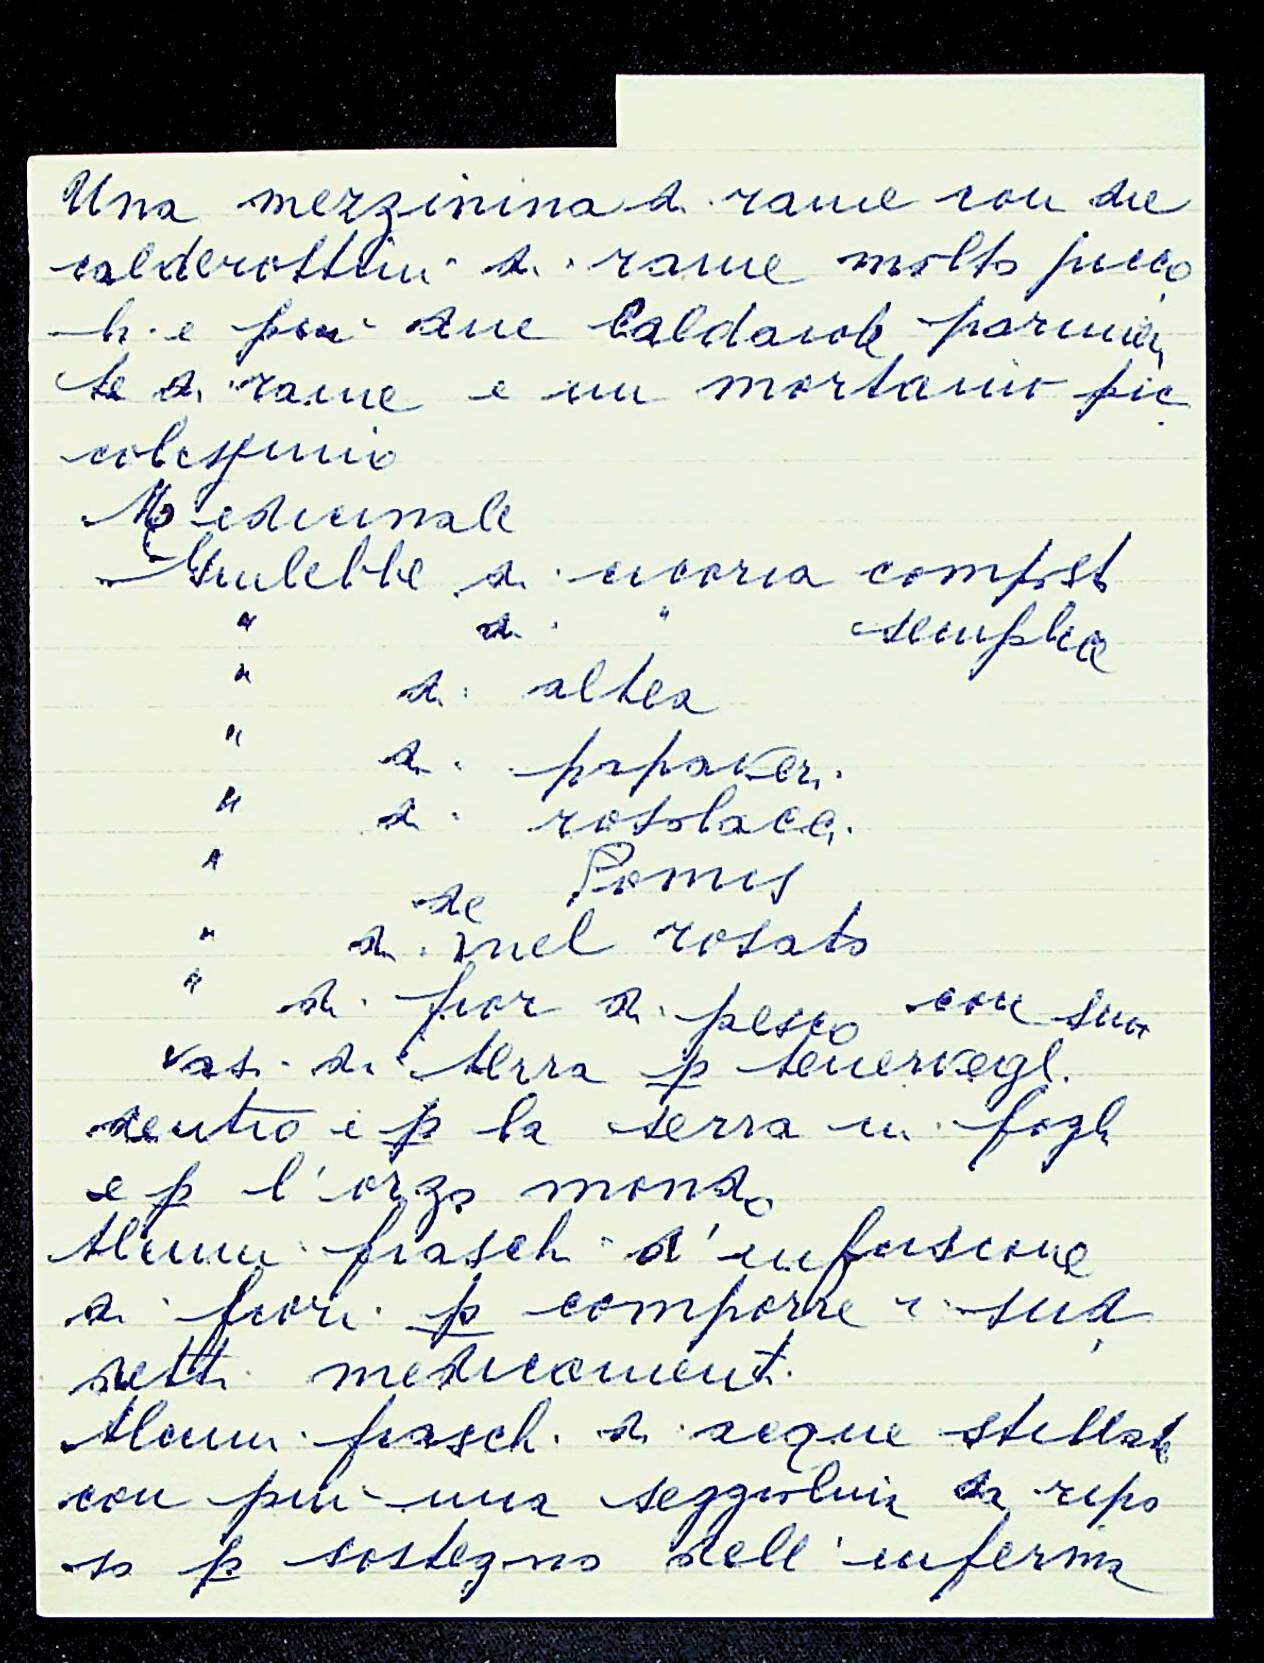 Una mezzinina di rame con due
calderottini di rame molto picco
li e più due Caldaiole parimen
te di rame e un mortaino pic
colissimo
Medicinale
Giulebbe di cicoria compost
" di " semplice
" di altea
" di papaveri
" di rosolacci
" de Pomis
" di mel rosato
" di fior di pesco con suoi
vasi di terra p tenervegli
dentro e p la serra in fogli
e p l'orzo mondo
Alcuni fiaschi d'infusione
di fiori p comporre i sud
detti medicamenti
Alcuni fiaschi di acque stillate
con più una seggiolina da ripo
so p sostegno dell'inferma